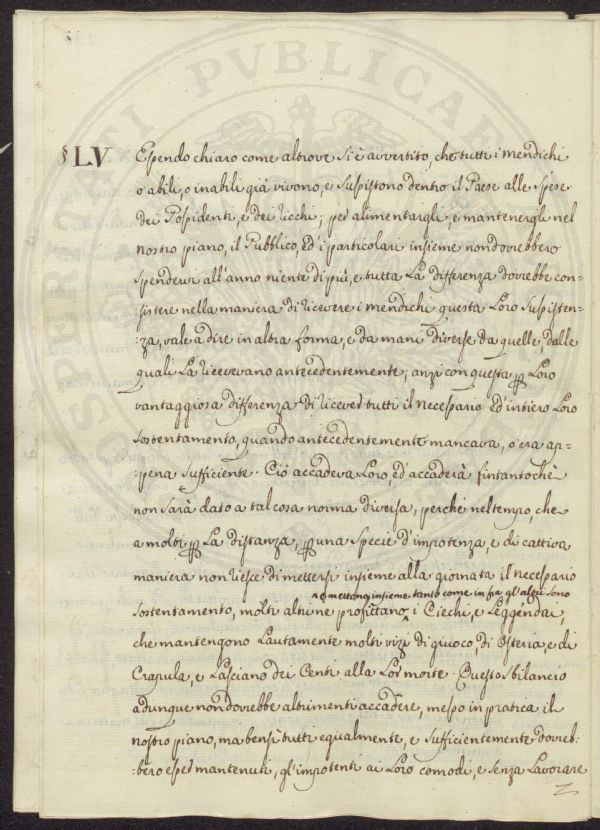 § LV. Essendo chiaro come altrove si è avvertito, che tutti i mendichi
o abili, o inabili già vivono, e sussistono dentro il Paese alle spese
dei Possidenti, e dei ricchi; per alimentargli, e mantenergli nel
nostro piano, il Pubblico, ed i particolari insieme non dovrebbero
spendervi all'anno niente di più, e tutta la differenza dovrebbe con-
sistere nella maniera di ricevere i mendichi questa loro sussisten-
:za, vale a dire in altra forma, e da mani diverse da quelle, dalle
quali la ricevevano antecedentemente; anzi con questa p loro
vantaggiosa differenza di ricever tutti il necessario ed' intiero loro
sostentamento, quando antecedentemente mancava, o era ap-
:pena sufficiente. Ciò accadeva loro, ed' accaderà fintantochè
non sarà dato a tal cosa norma diversa, perchè nel tempo, che
a molti p la distanza, p una specie d'impotenza, e di cattiva
maniera non riesce di mettersi insieme alla giornata il necessario
e mettono insieme tanto come in fra gl'altri sono
sostentamento, molti altri ne profittano, i Ciechi, e Leggendai,
che mantengono lautamente molti vizj di giuoco di Osteria, e di
Crapula, e lasciano dei Centi alla lor morte. Questo sbilancio
adunque non dovrebbe altrimenti accadere, messo in pratica il
nostro piano, ma bensì tutti egualmente, e sufficientemente dovreb-
:bero esser mantenuti, gl'impotenti ai loro comodi, e senza lavorare
OSPERITATI PVBLICAE